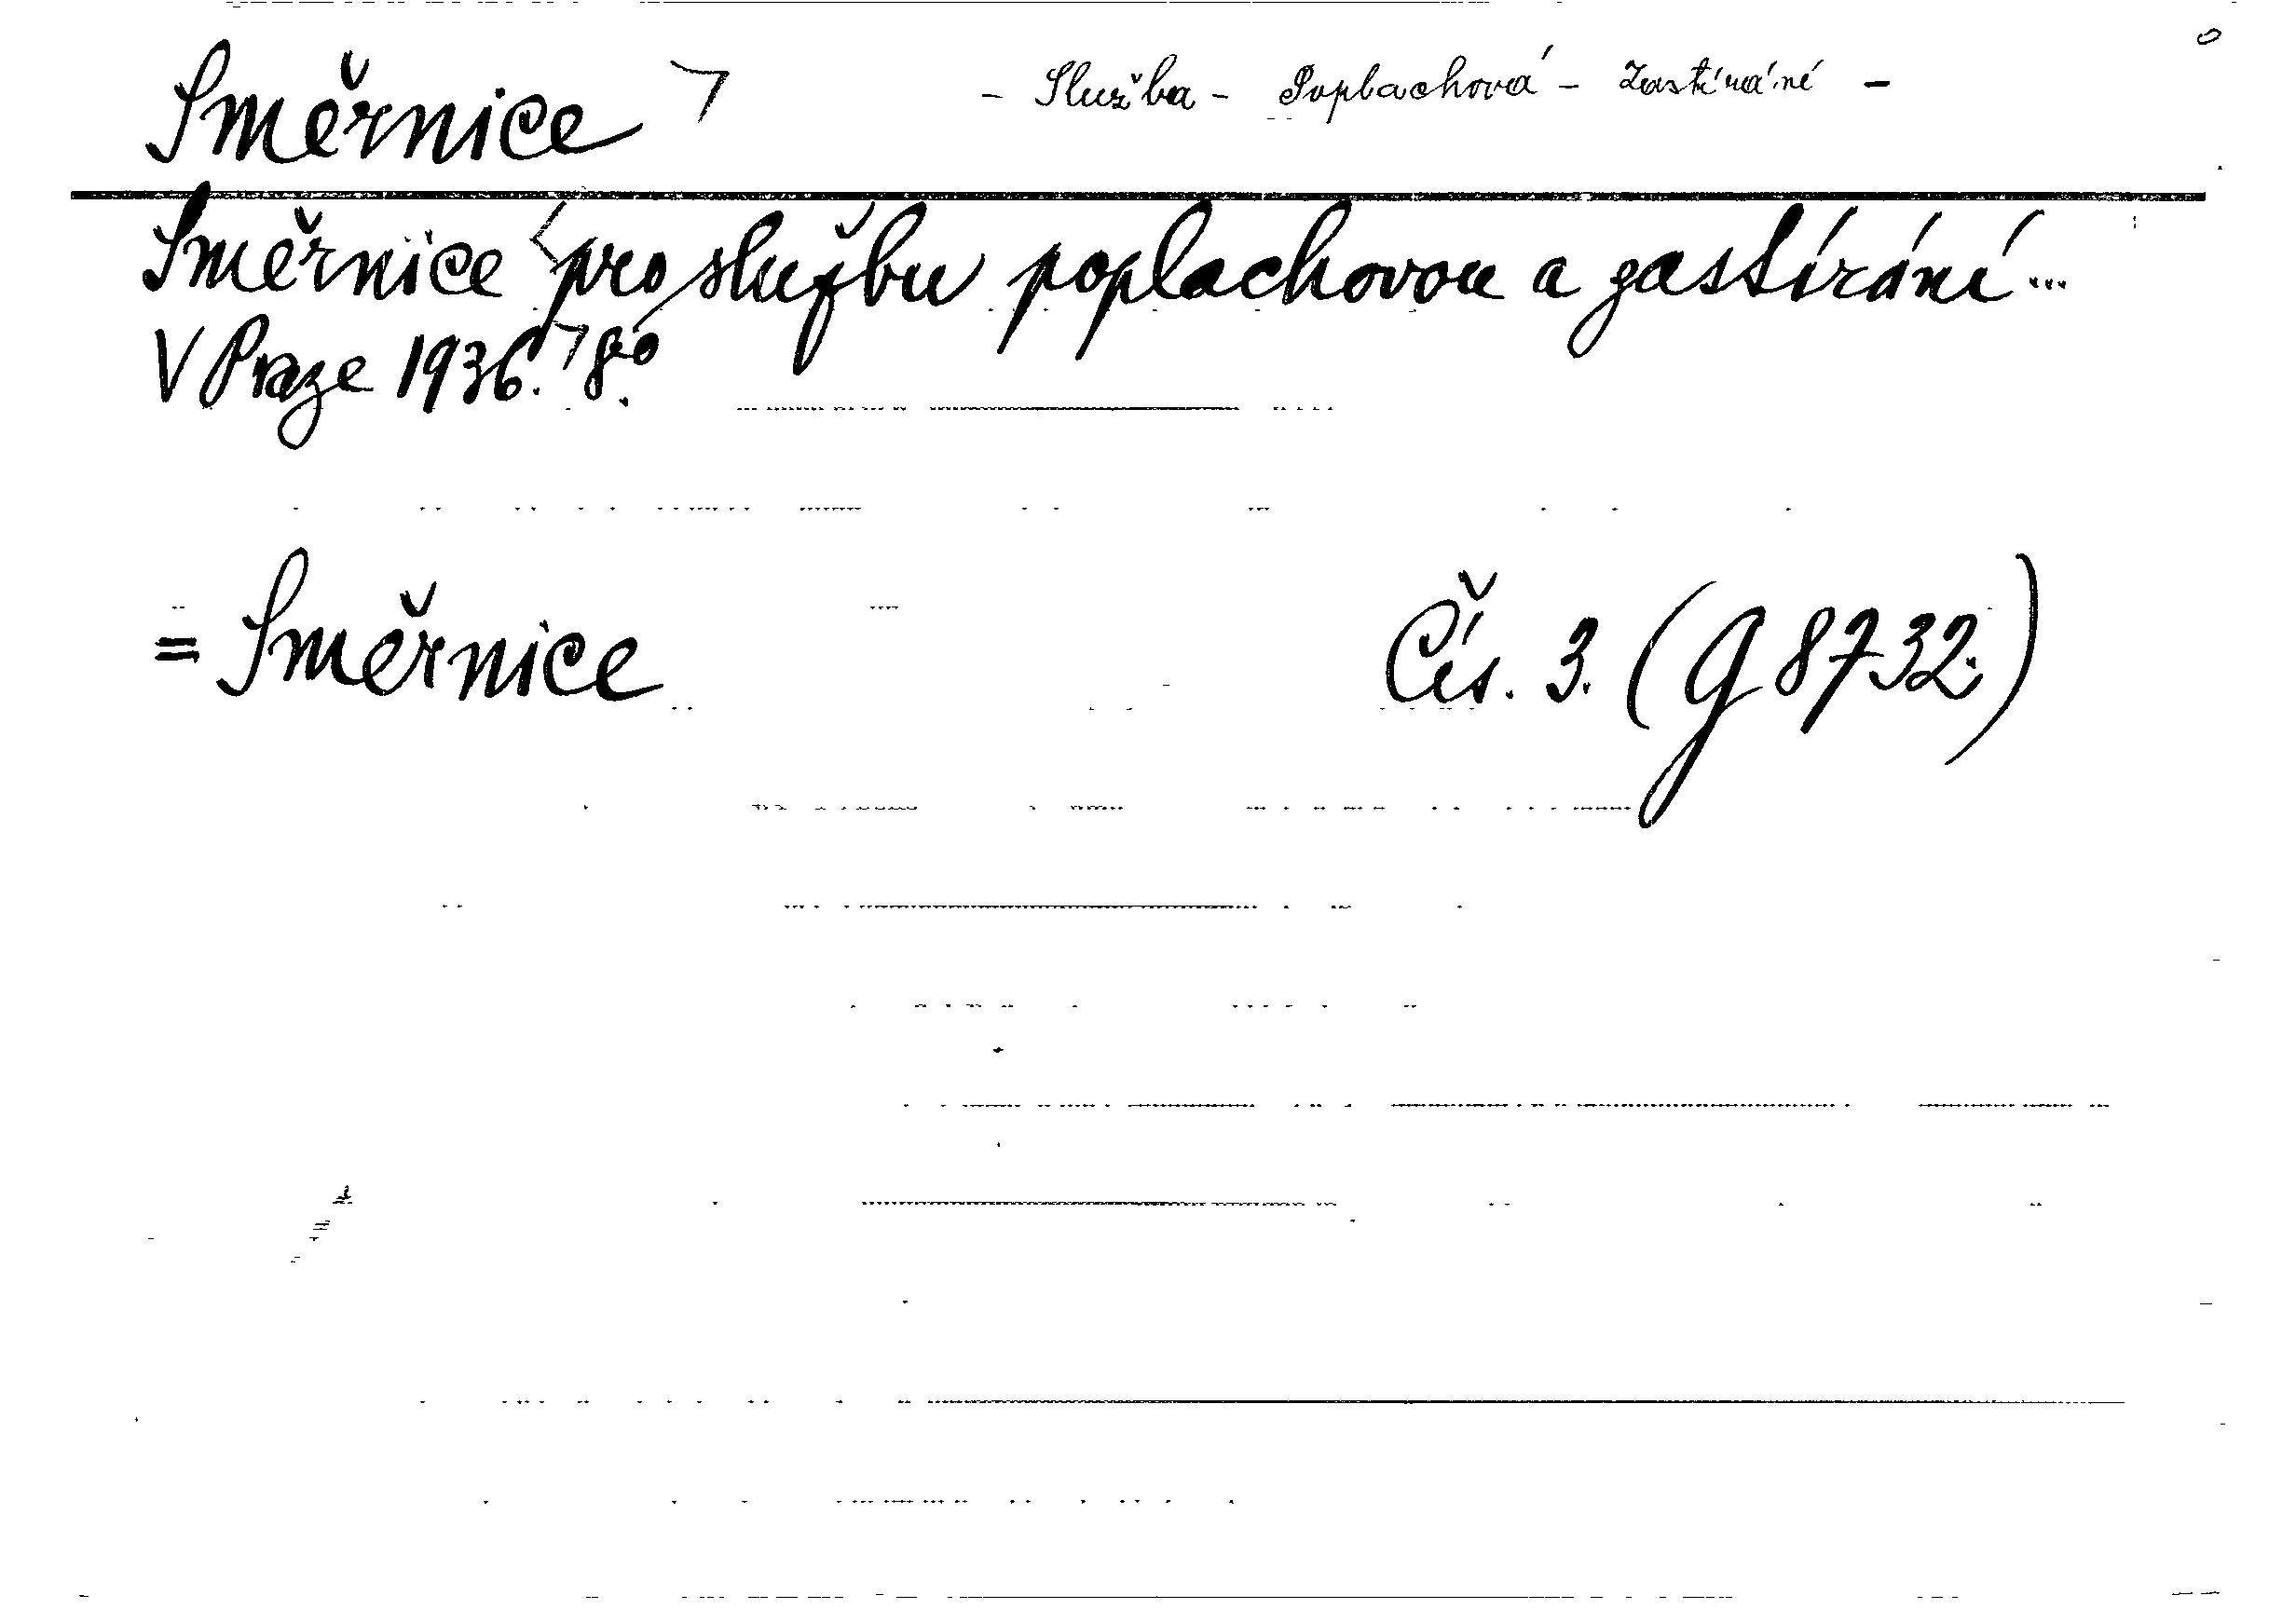 Směrnice - Služba - Poplachová - Zastírání -
Směrnice pro službu poplachovou a zastírání...
V Praze 1936. 8o.
= Směrnice Čís. 3. (G 8732.)